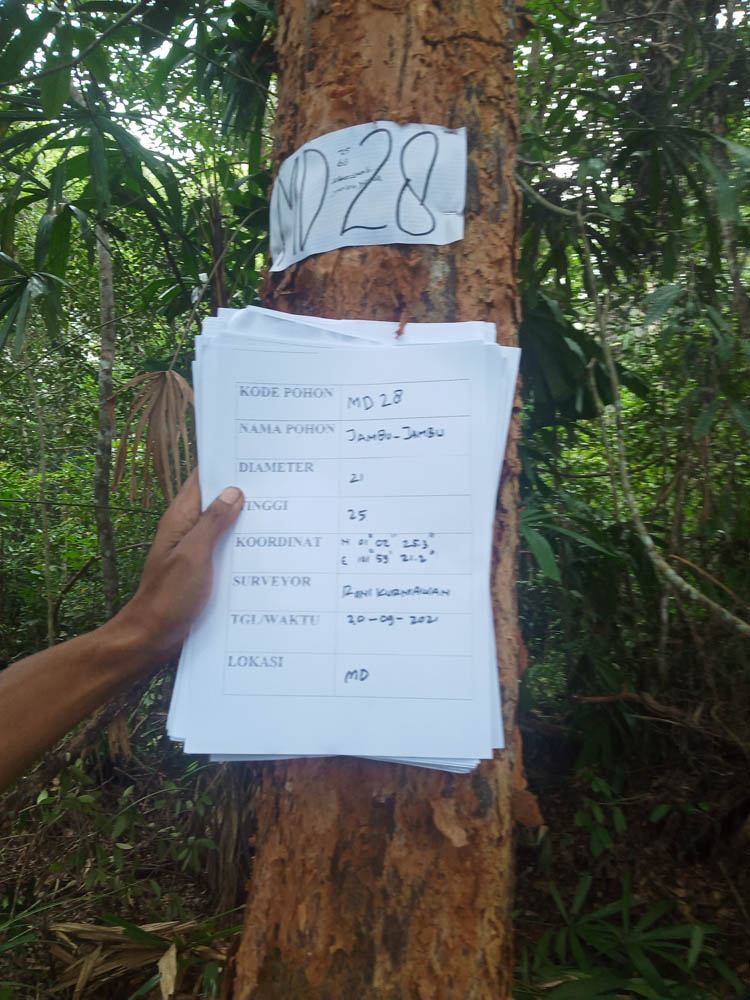 MD-28
KODE POHON MD 28
NAMA POHON JAMBU-JAMBU
DIAMETER 21
TINGGI 25
KOORDINAT N 01° 02' 25.3"
E 101° 59' 21.2"
SURVEYOR RONI KURNIAWAN
TGL/WAKTU 20-09-2021
LOKASI MD